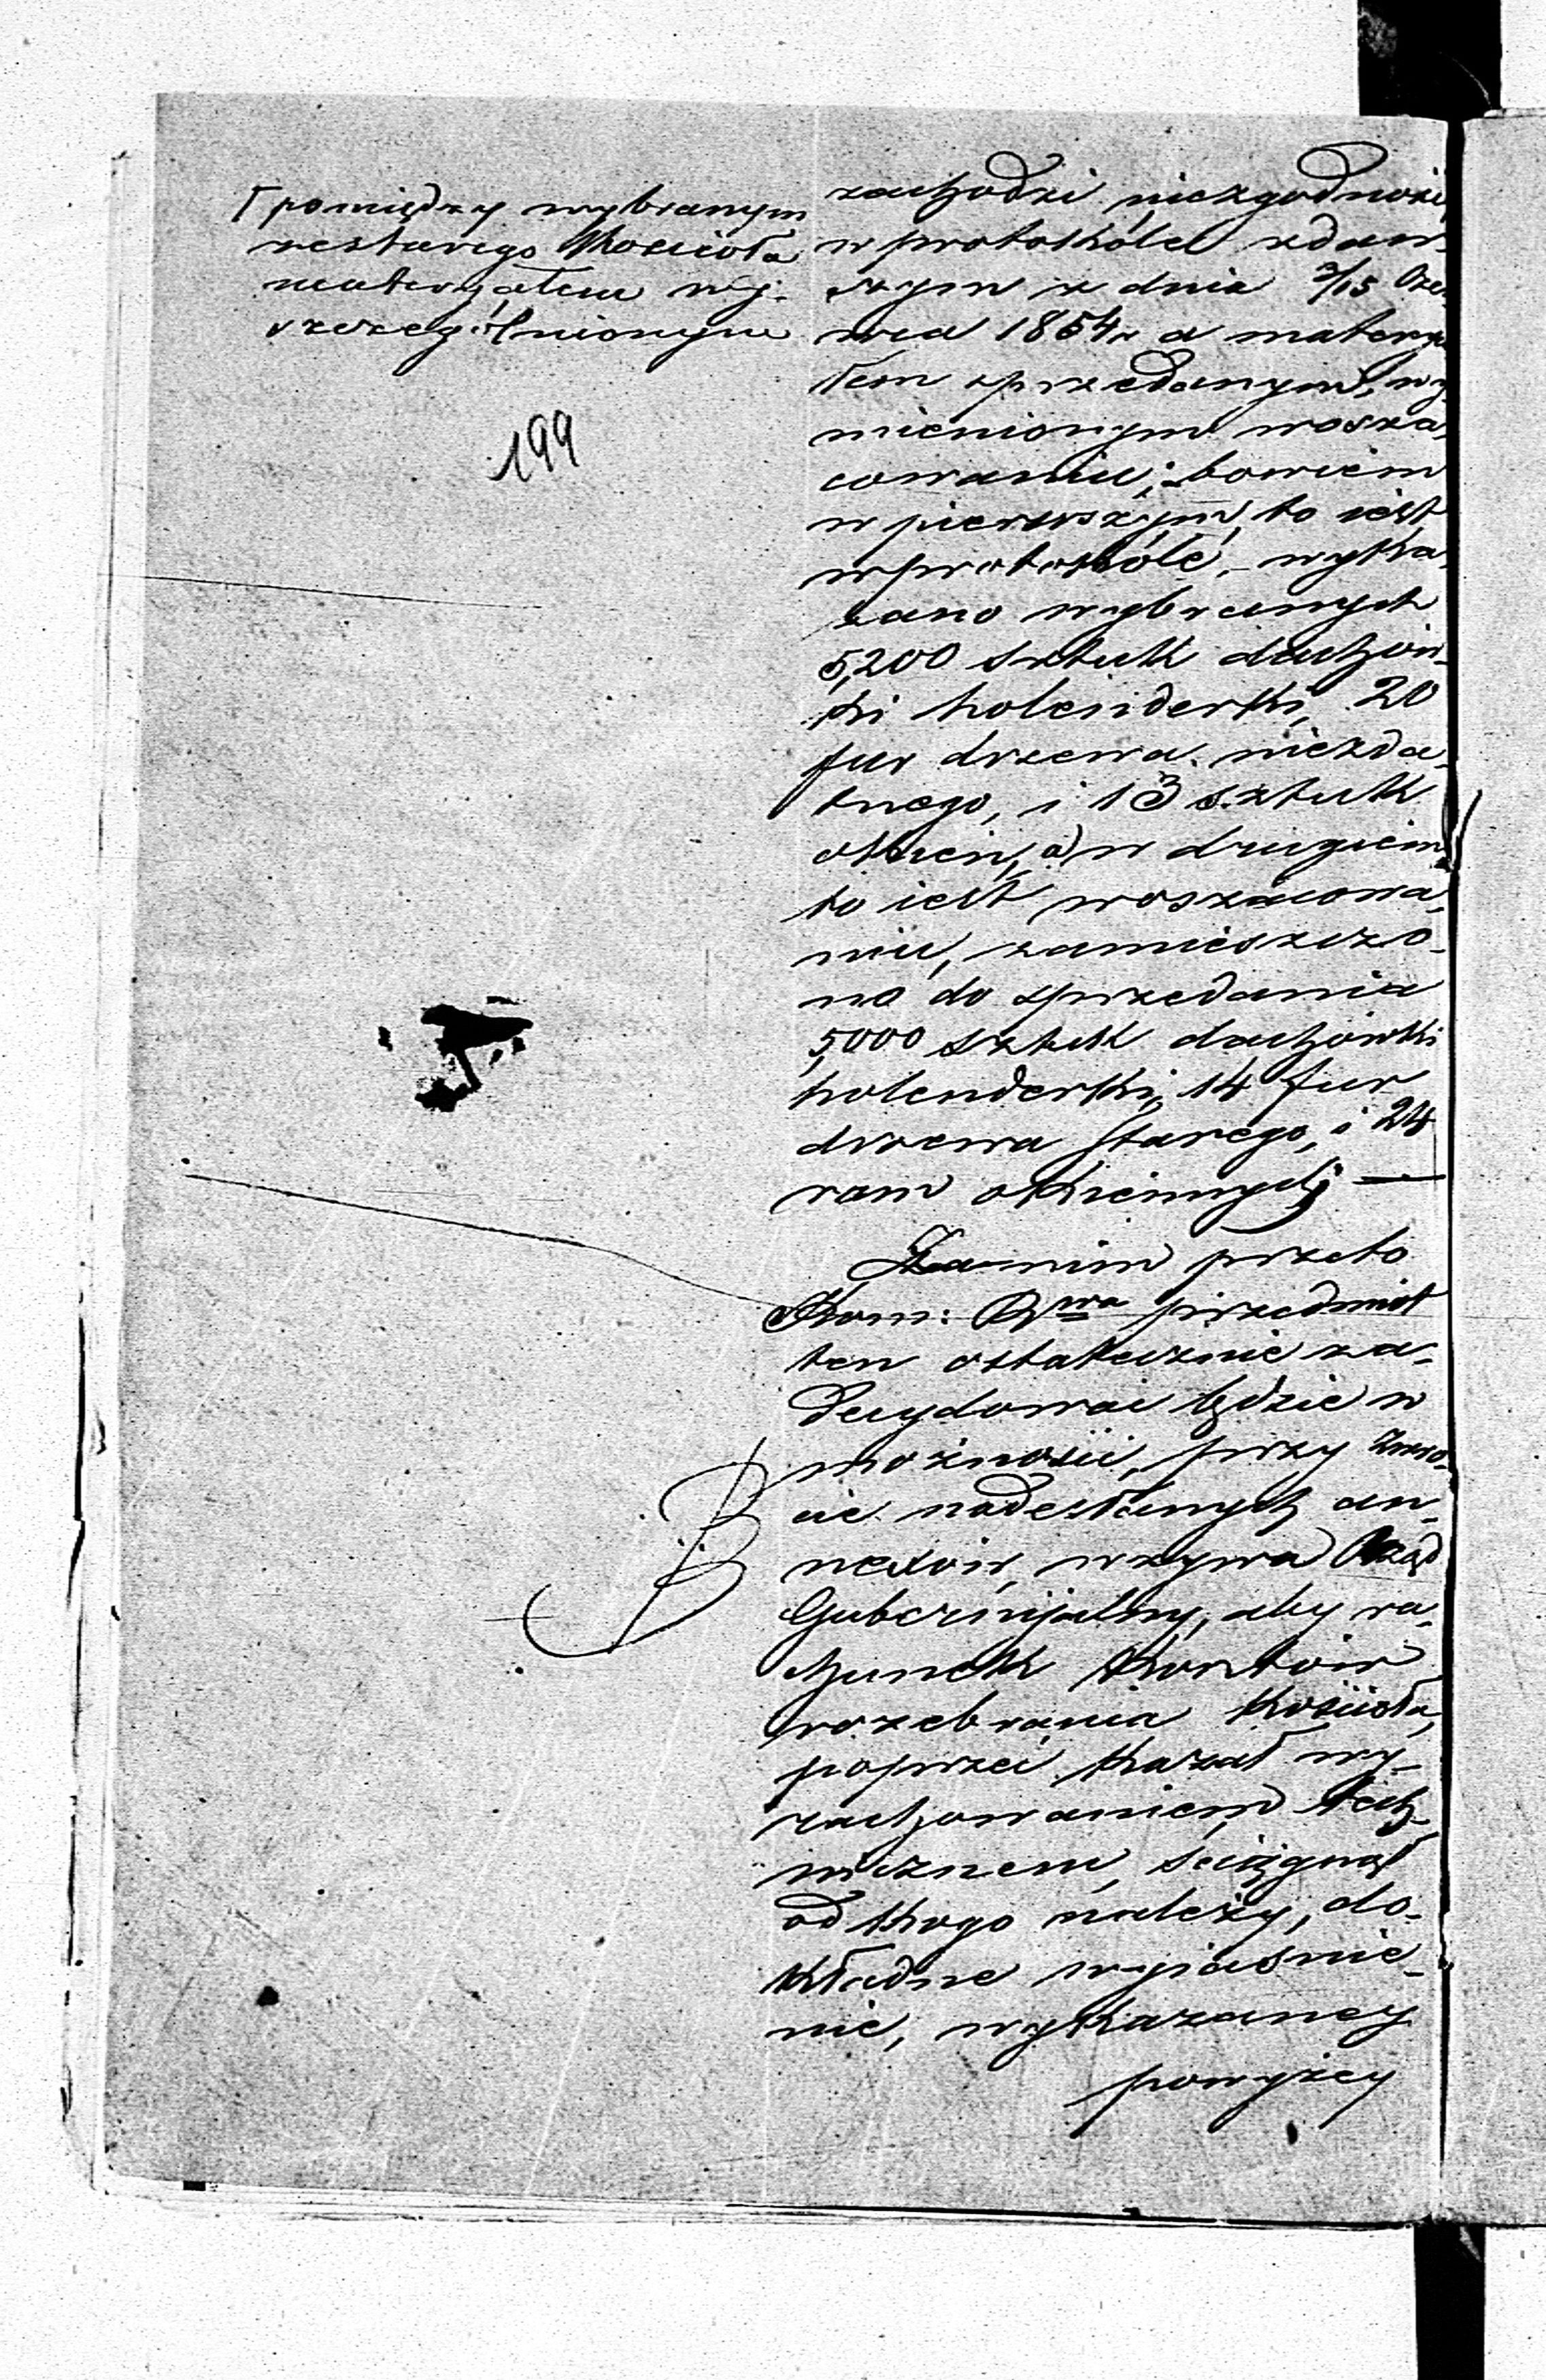 Γ pomiędzy wybranym
zestarego Kościoła
materyałem wy-
szczególnionym
199
zachodzi niezgodność
w protokóle zdaw-
czym z dnia 3/15 Cze-
wca 1854 r a materya
łem sprzedanym, wy-
mienionym woszza-
cowaniu; bowiem
w pierwszym, to iest
wprotokóle, wyka-
zano wybranych
5,200 sztuk dachów-
ki holenderki, 20
fur drzewa niezda-
tnego, i 13 sztuk
okien, a w drugiem
to iest woszacowa-
niu, zamieszczo-
no do sprzedania
5,000 sztuk dachówki
holenderki, 14 fur
drzewa starego, i 24
ram okiennych; —
Zanim przeto
Kom: Rwa przedmiot
ten ostatecznie za-
decydować będzie w
możności, przy zwro-
cie nadesłanych an-
nexów, wzywa Rząd
Gubernijalny, aby ra-
chunek kosztów
rozebrania Kościoła,
poprzeć kazał wy-
rachowaniem tech-
nicznem, ściągnął
od kogo należy, do-
kładne wyiaśnie-
nie, wykazaney
powyżey